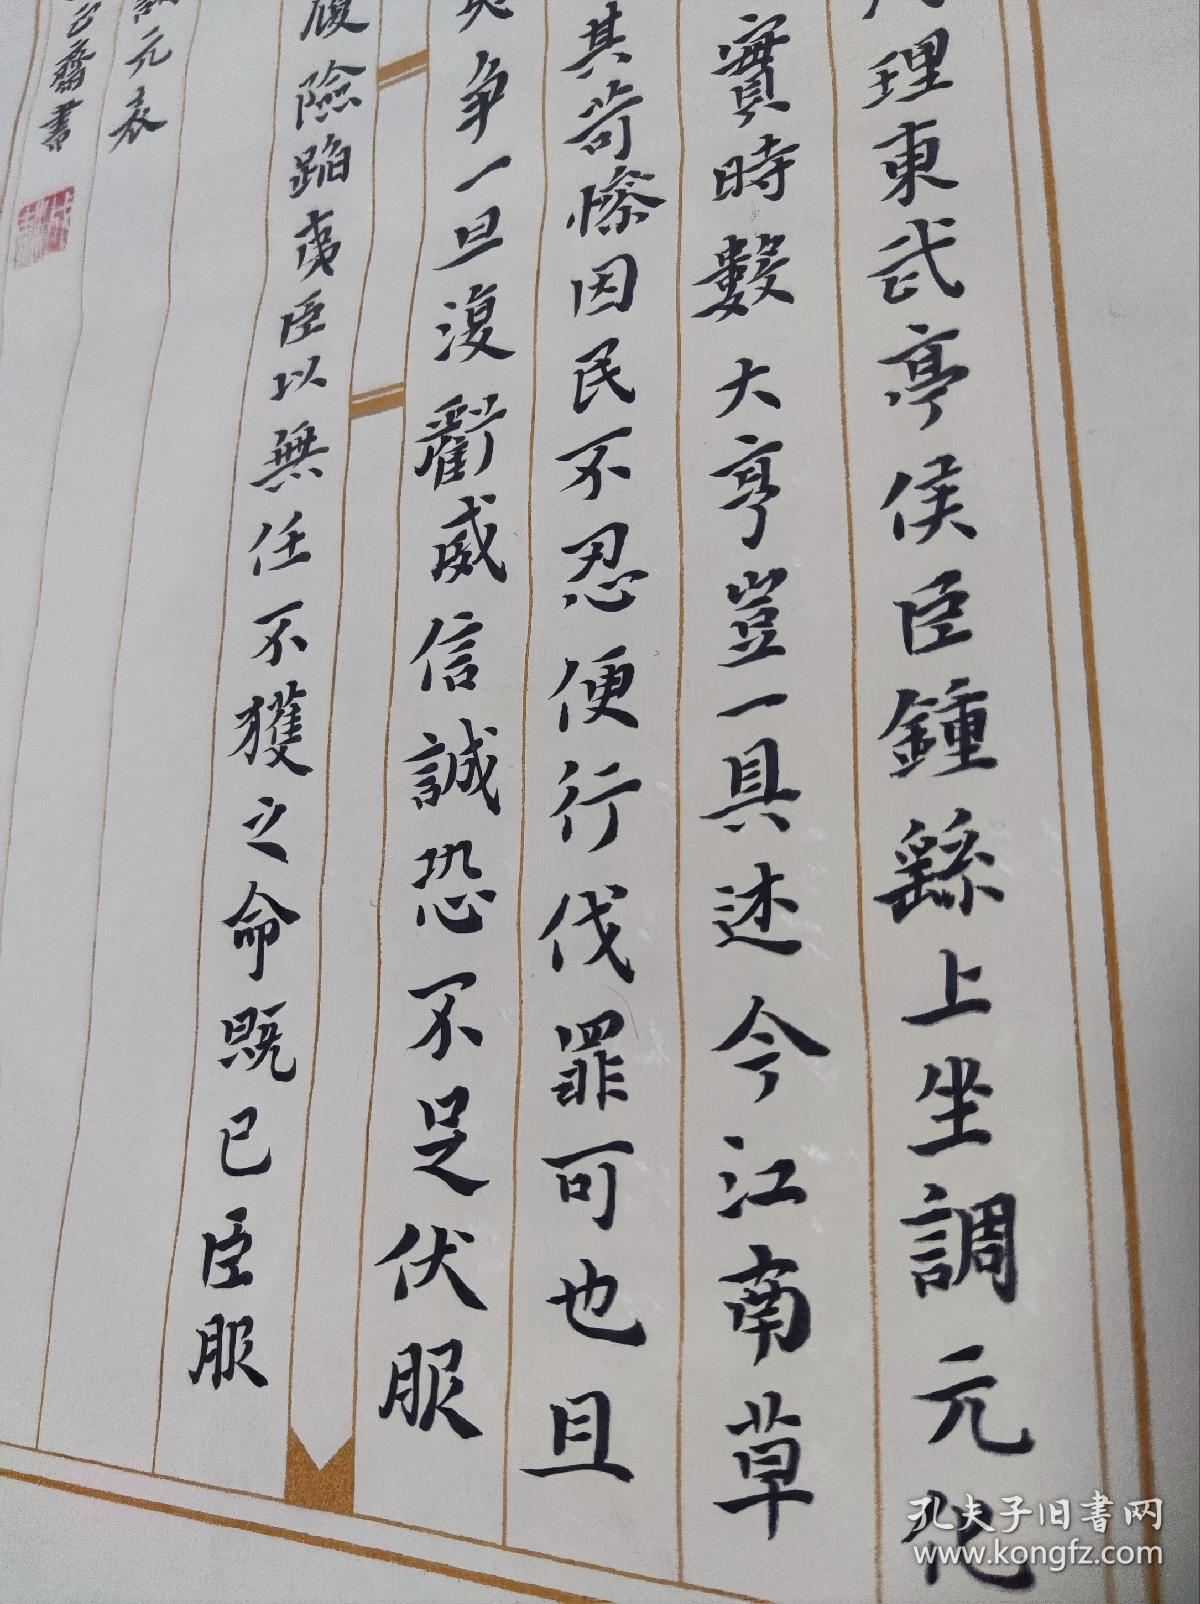 理東武亭侯臣鍾繇上坐調元化
實時數大亨豈一具述今江南草
其苛慘因民不忍便行伐罪可也且
争一旦復虧威信誠恐不足伏服
履險蹈夷臣以無任不獲之命既已臣服
調元表
齋書
孔夫子旧书网
www.kongfz.com